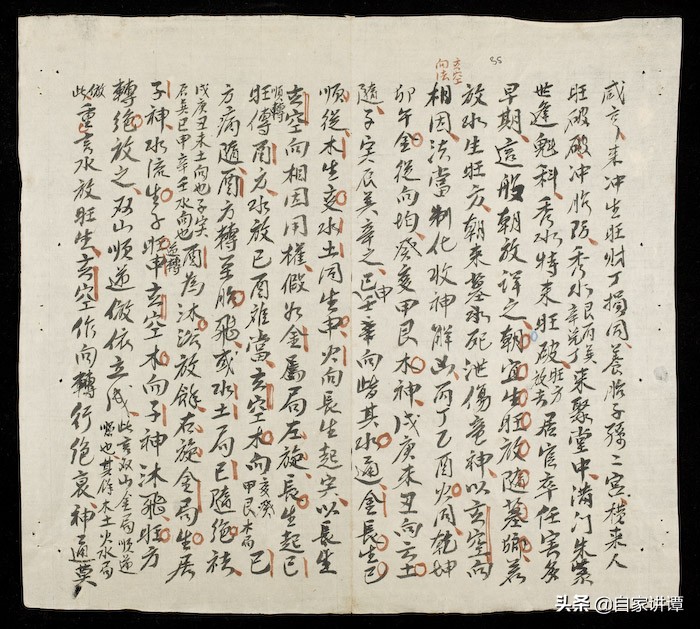 35
玄空
向法
咸言人来冲生旺财丁损因养胎子孫二宫横来人
旺破破冲胎防秀水艮丙巽辛兑丁来聚堂中满门朱紫
世逢魁科秀水特来旺破旺方放去居官卒任寅多
早期這般朝放详之朝宜生旺放随墓
放水生旺方朝来墓水死泄傷竜神以玄空向
相因法當制化收神解凶丙丁乙酉火同乾坤
卯午金從向均癸亥甲艮木神戊庚未丑向云土
随子寅辰巽辛之巳壬申向皆其水通金長生巳
順從木生亥水土同生申火向長生起寅以長生
玄空向相因用權假如金属局左旋長生起巳
順轉旺傳酉方水放巳酉難當玄空木向亥癸甲艮木局巳
方病随酉方轉至胎飛或水土局巳随絶
戊庚丑未土向也子寅辰巽巳甲辛壬水向也酉為沐浴放餘右旋金局生居
子神水流生子旺申逆轉玄空木向子神沐飛旺方
轉絶放之双山順逆倣依立成此言双山金局順逆照也其餘木土火水局
倣此重玄水放旺生玄空作向轉行絶衰神通
头条@自家讲谭